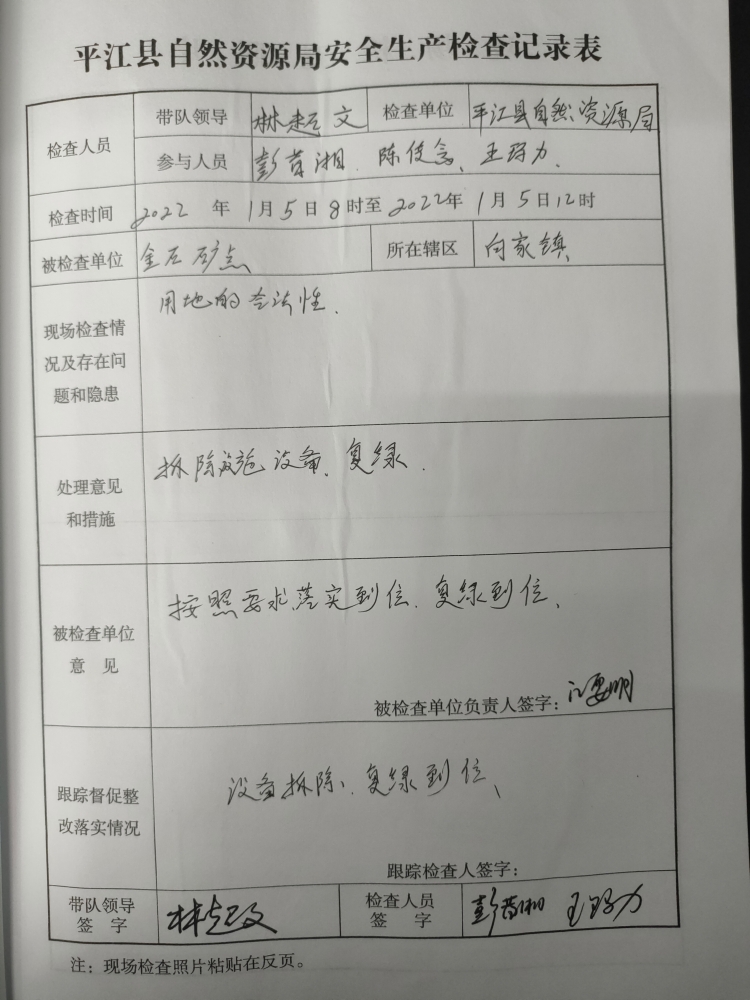 平江县自然资源局安全生产检查记录表
检查人员 带队领导 林起文 检查单位 平江县自然资源局
参与人员 彭 湘、陈 、王 力、
检查时间 2022 年 1月5日8时至2022年1月5日12时
被检查单位 金石矿点 所在辖区 向家镇
现场检查情
况及存在问
题和隐患
用地的合法性.
处理意见
和措施
拆除设施设备、复绿.
被检查单位
意 见
按照要求落实到位、复绿到位、
被检查单位负责人签字:
跟踪督促整
改落实情况
设备拆除、复绿到位、
跟踪检查人签字:
带队领导
签 字
林起文
检查人员
签 字
彭 湘 王 力
注:现场检查照片粘贴在反页。